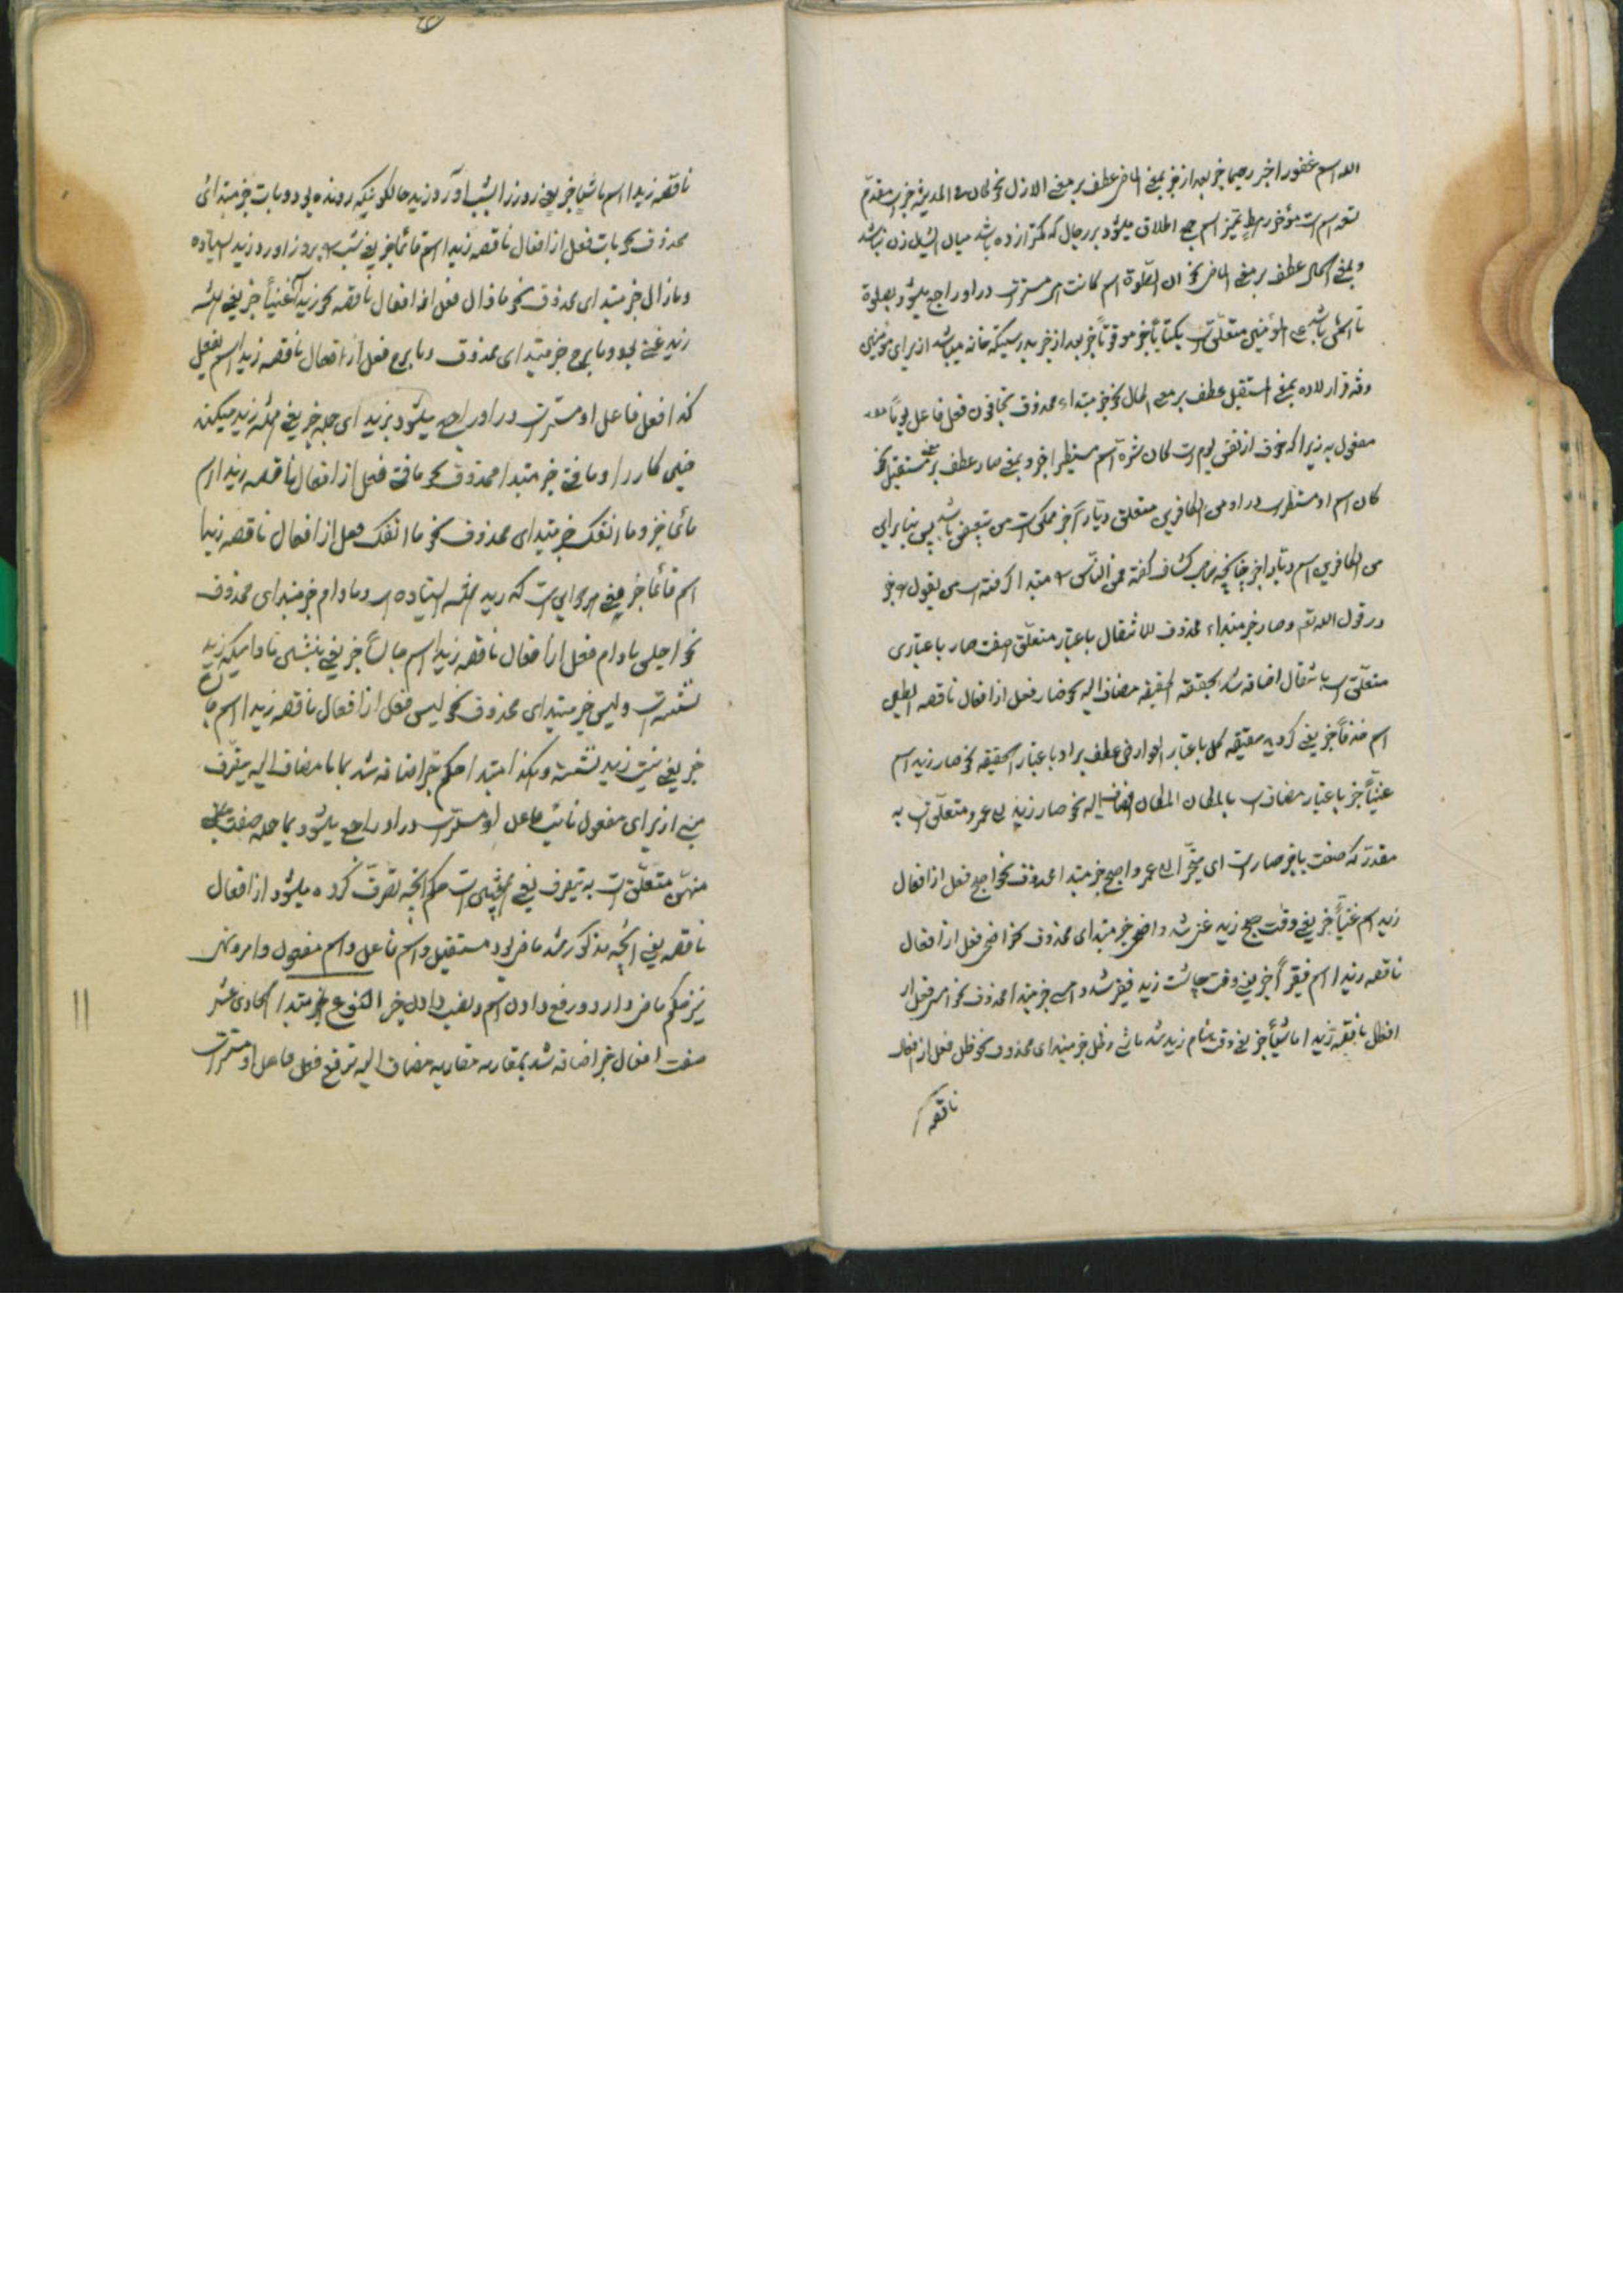 الله اسم غفورا خبر رحیما خبر بعد از خبر بمعنی الماضی عطف بر معنی الازل نحو کان فی المدینة خبر است مقدم
تسعه اسم است مؤخر رهط تمیز اسم جمع اطلاق میشود بر رجال که کمتر از ده باشد میان ایشان زن نباشد
و بمعنی الحال عطف بر معنی الماضی نحو ان الصلوة اسم کانت هی مستتر است در او راجع میشود بصلوة
تا اسمش باشد علی المؤمنین متعلق است بکتابا خبر موقوتا خبر بعد از خبر بدرستیکه نماز میباشد از برای مؤمنین
وقت قرار داده بمعنی استقبل عطف بر معنی الحال نحو خبر مبتداء محذوف یخافون فعل فاعل یوما
مفعول به زیرا که خوف از نفس یوم است کان شره اسم مستطیرا خبر و بمعنی صار عطف بر معنی مستقبل نحو
کان اسم او مستتر است در او من الکافرین متعلق دیگر آخر ممکن است من تبعیض باشد پس بنا برای
من الکافرین اسم و خبر چنانچه صاحب کشاف گفته من الناس را مبتدا گرفته است من یقول را خبر
در قول الله تعالی و صار خبر مبتداء محذوف للانتقال باعتبار متعلق صفت صار باعتباری
متعلق است بانتقال اضافه شد بحقیقة الحقیقة مضاف الیه نحو صار فعل از افعال ناقصه الطین
اسم خزفا خبر یعنی گردید حقیقه گل باعتبار العوارض عطف بر او باعتبار الحقیقه نحو صار زید اسم
غنیا خبر باعتبار مضاف است بالمکان المکان مضاف الیه نحو صار زید الی عمر و متعلق است به
مقدر که صفت یا خبر صار است ای متخیرا الی عمر و اصبح خبر مبتدا محذوف نحو اصبح فعل از افعال
زید اسم غنیا خبر یعنی وقت صبح زید غنی شد و اضحی خبر مبتدای محذوف نحو اضحی فعل از افعال
ناقصه زید اسم فقیرا خبر یعنی وقت چاشت زید فقیر شد و امسی خبر مبتدا محذوف نحو امسی فعل از
افعال ناقصه زید اسم ماشیا خبر یعنی وقت شام زید شد ماشی و ظل خبر مبتدای محذوف نحو ظل فعل از افعال
ناقصه
ناقصه زید اسم ماشیا خبر یعنی روز را بشب آورد زید حالکونیکه رونده بود و بات خبر مبتدای
محذوف نحو بات فعل از افعال ناقصه زید اسم قائما خبر یعنی شب را بروز آورد زید ایستاده
و مازال خبر مبتدای محذوف نحو مازال فعل از افعال ناقصه نحو زید غنیا خبر یعنی همیشه
زید غنی بود و مابرح خبر مبتدای محذوف مابرح فعل از افعال ناقصه زید اسم یفعل
کذا فعل فاعل او مستتر است در او راجع میشود بزید ای جمله خبر یعنی همیشه زید میکند
چنین کار را و مافتئ خبر مبتدا محذوف نحو مافتئ فعل از افعال ناقصه زید اسم
قائما خبر و ما انفک خبر مبتدای محذوف نحو ما انفک فعل از افعال ناقصه زید
اسم قائما خبر یعنی است که زید همیشه ایستاده است و مادام خبر مبتدای محذوف
نحو اجلس مادام فعل از افعال ناقصه زید اسم جالسا خبر یعنی بنشین مادامیکه زید
نشسته است و لیس خبر مبتدای محذوف نحو لیس فعل از افعال ناقصه زید اسم جالسا
خبر یعنی نیست زید نشسته و هکذا مبتدا حکم خبر اضافه شد بما ما مضاف الیه یتصرف
مبنی از برای مفعول نائب فاعل او مستتر است در او راجع میشود بما جمله صفت
منهن متعلق است به یتصرف یعنی همچنین است حکم آنچه تصرف کرده میشود از افعال
ناقصه یعنی آنچه مذکور شد ماضی بود مستقبل و اسم فاعل و اسم مفعول و امر و نهی
نیز حکم ماضی دارد در رفع دادن اسم و نصب دادن خبر النوع خبر مبتدا الحادی عشر
صفت افعال خبر اضافه شد بمقاربه مقاربه مضاف الیه ترفع فعل فاعل او مستتر است
۱۱